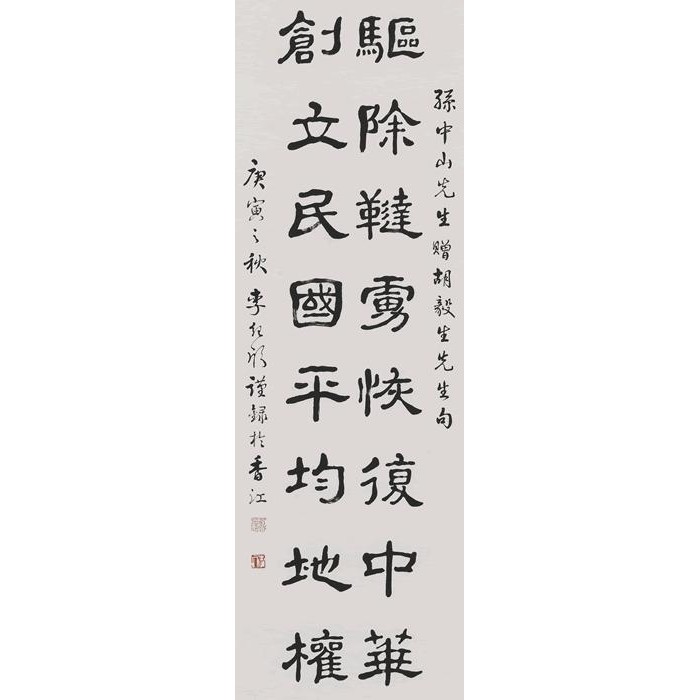 孫中山先生贈胡毅生先生句
驅除韃虜恢復中華
創立民國平均地權
庚寅之秋李任形謹録於香江